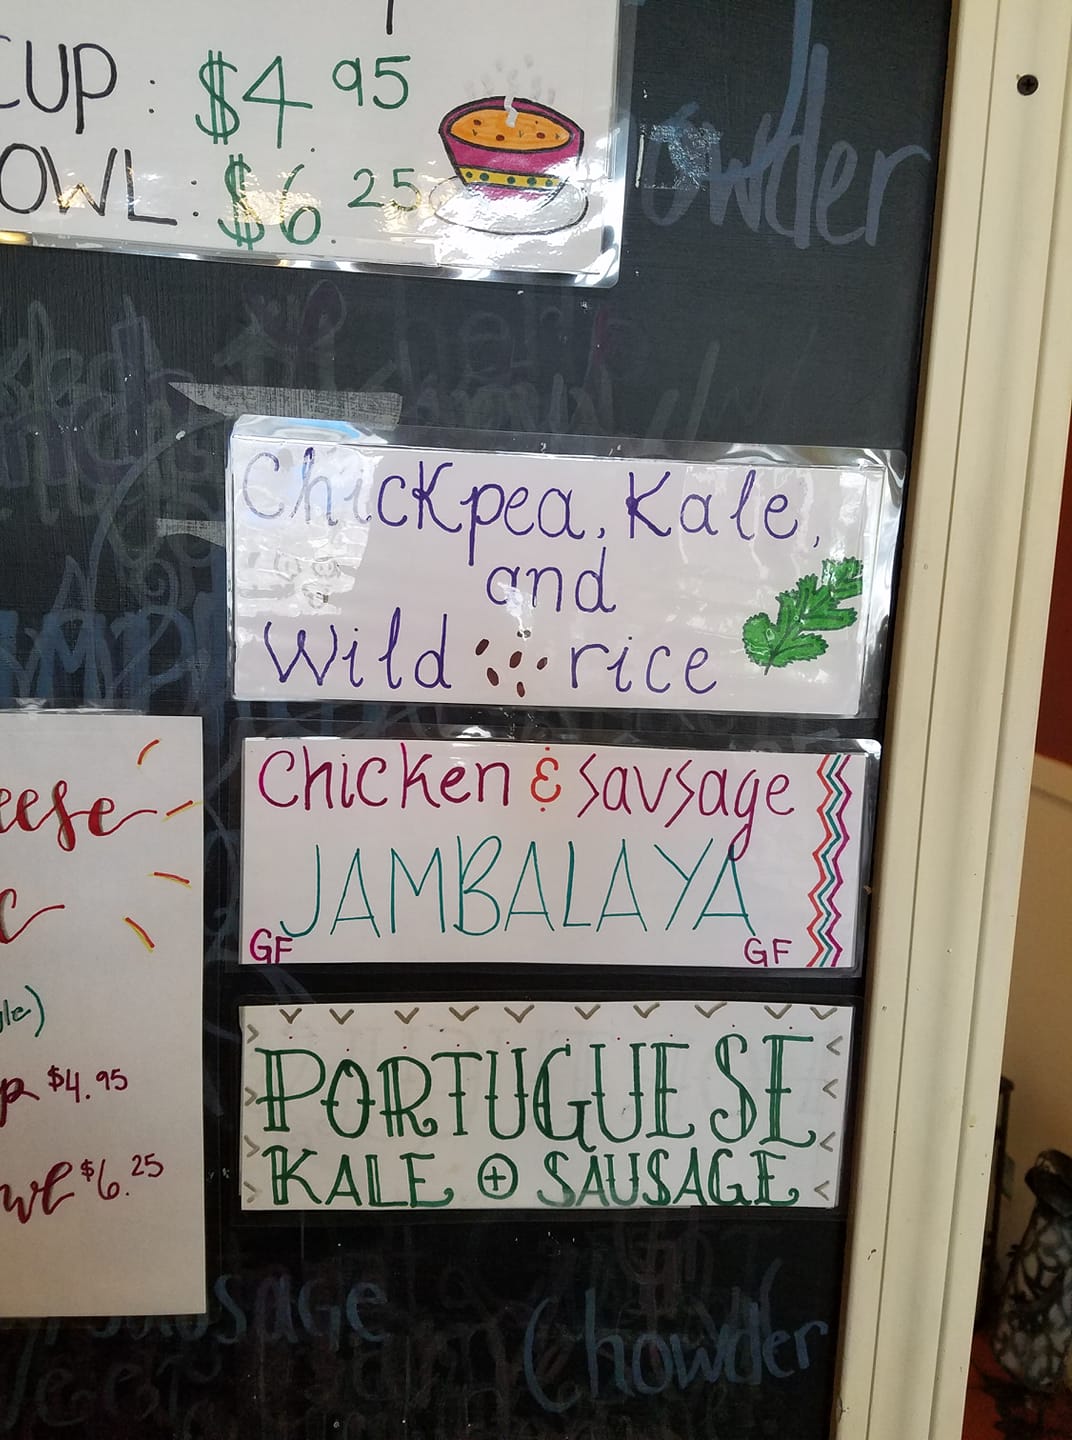 CUP: $4.95
OWL: $6.25
owder
Chickpea, Kale,
and
Wild rice
Chicken & Sausage
JAMBALAYA
GF GF
eese
c
le)
p $4.95
owl $6.25
PORTUGUESE
KALE + SAUSAGE
sausage
Chowder